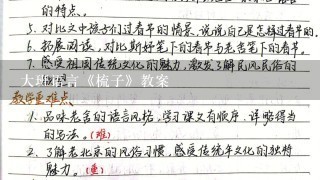 的特点。
5. 对比文中孩子们过春节的情景,说说自己是怎样过春节的。
6. 拓展阅读,对比斯妤笔下的春节与老舍笔下的春节。
7. 感受祖国传统文化的魅力,激发了解民风民俗的
大班语言《梳子》教案
教学重难点
1. 品味老舍的语言风格,学习课文有顺序、详略得当
的写法。(难)
2. 了解老北京的风俗习惯,感受传统年文化的独特
魅力。(重)